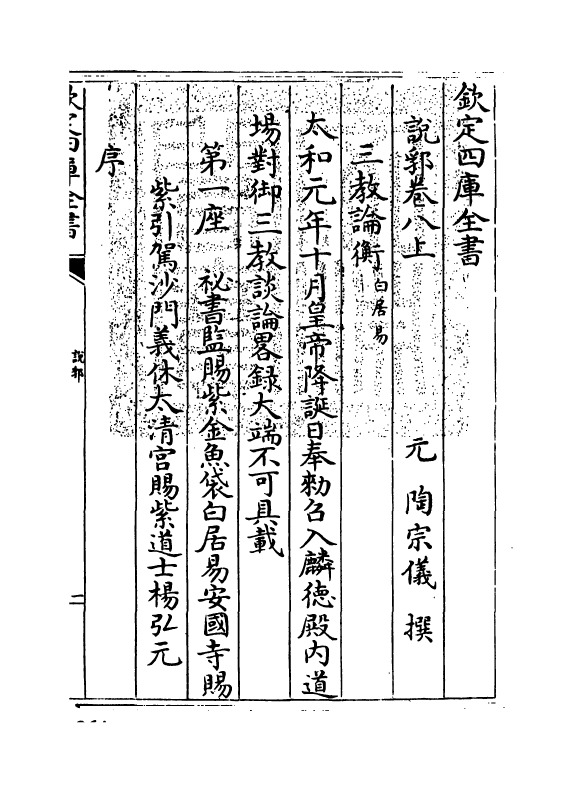 欽定四庫全書
說郛卷八上　元　陶宗儀　撰
三教論衡　白居易
太和元年十月皇帝降誕日奉勅召入麟德殿内道
場對御三教談論畧録大端不可具載
第一座　祕書監賜紫金魚袋白居易安國寺賜
紫引駕沙門義休太清宫賜紫道士楊弘元
序
欽定四庫全書
說郛
二